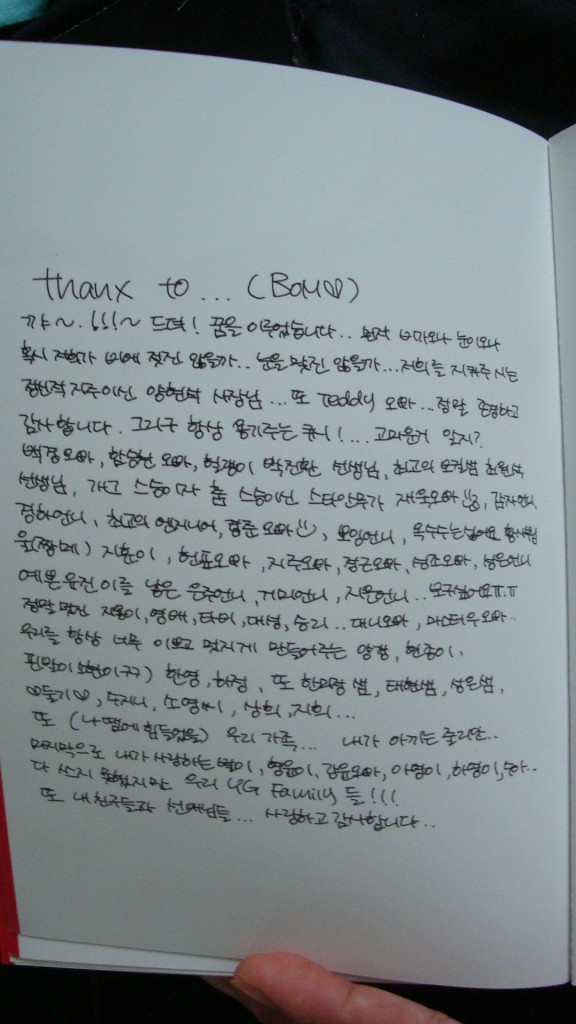 thanx to ... (BoM♡)
꺄~.!!!~ 드뎌! 꿈을 이루었습니다.. 먼저 비가오나 눈이오나
혹시 저희가 비에 젖진 않을까.. 눈을 맞진 않을까...저희를 지켜주시는
정신적지주이신 양현석 사장님 ... 또 Teddy 오빠... 정말 존경하고
감사합니다. 그리구 항상 용기주는 쿠시!... 고마운거 알지?
백경오빠, 함승천 오빠, 박진환 선생님, 최고의 보컬쌤 최원석
선생님, 개그 스승이자 춤 스승이신 스타안무가 재욱오빠, 감자언니
경하언니, 최고의 엔지니어, 형준오빠, 모임언니, 옥수수는
욱(짱메) 지훈이, 현표오빠, 지루오빠, 정근오빠, 성조오빠, 성은언니
예쁜 윤진이를 낳은 은주언니, 거미언니, 지은언니.. ㅠ.ㅠ
정말 멋진 지용이, 영배, 타비, 대성, 승리.. 대니오빠, 마스터우오빠..
우리를 항상 너무 이쁘고 멋지게 만들어주는 양갱, 현종이,
한영, 하정, 또 쌤, 태현쌤, 성은쌤,
♡들기♡, 수지니, 소영씨, 상희, 지희...
또 (나땜에 힘들었을) 우리 가족... 내가 아끼는 줄리안..
마지막으로 내가 사랑하는 별이, 형윤이, 강윤오빠, 아영이, 하영이,
다 쓰지 못했지만 우리 YG Family 들!!!
또 내 친구들과 선배님들... 사랑하고 감사합니다..